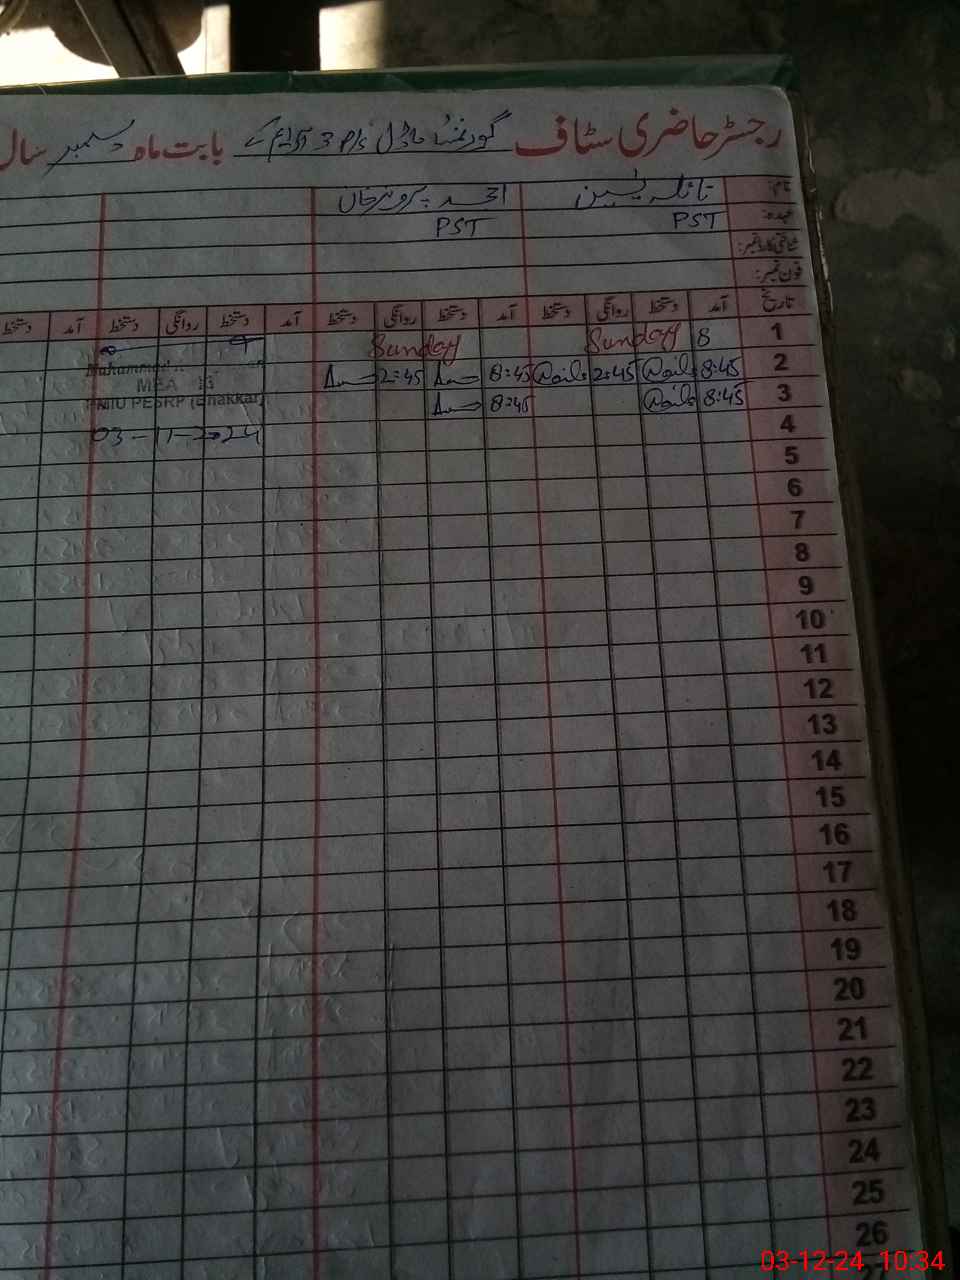 رجسٹر حاضری سٹاف گورنمنٹ ماڈل P/S 3 بابت ماہ دسمبر سال
نام: نائلہ یسین احمد پرویز خان
عہدہ: PST PST
شناختی کارڈ نمبر:
فون نمبر:
تاریخ آمد دستخط روانگی دستخط آمد دستخط روانگی دستخط آمد دستخط روانگی دستخط آمد دستخط
1 8 Sunday Sunday
2 8:45 2:45 8:45 2:45 Muhammad
3 8:45 8:45 MEA
PMIU PESRP (Bhakkar)
4 03-11-2024
5
6
7
8
9
10
11
12
13
14
15
16
17
18
19
20
21
22
23
24
25
26
03-12-24 10:34